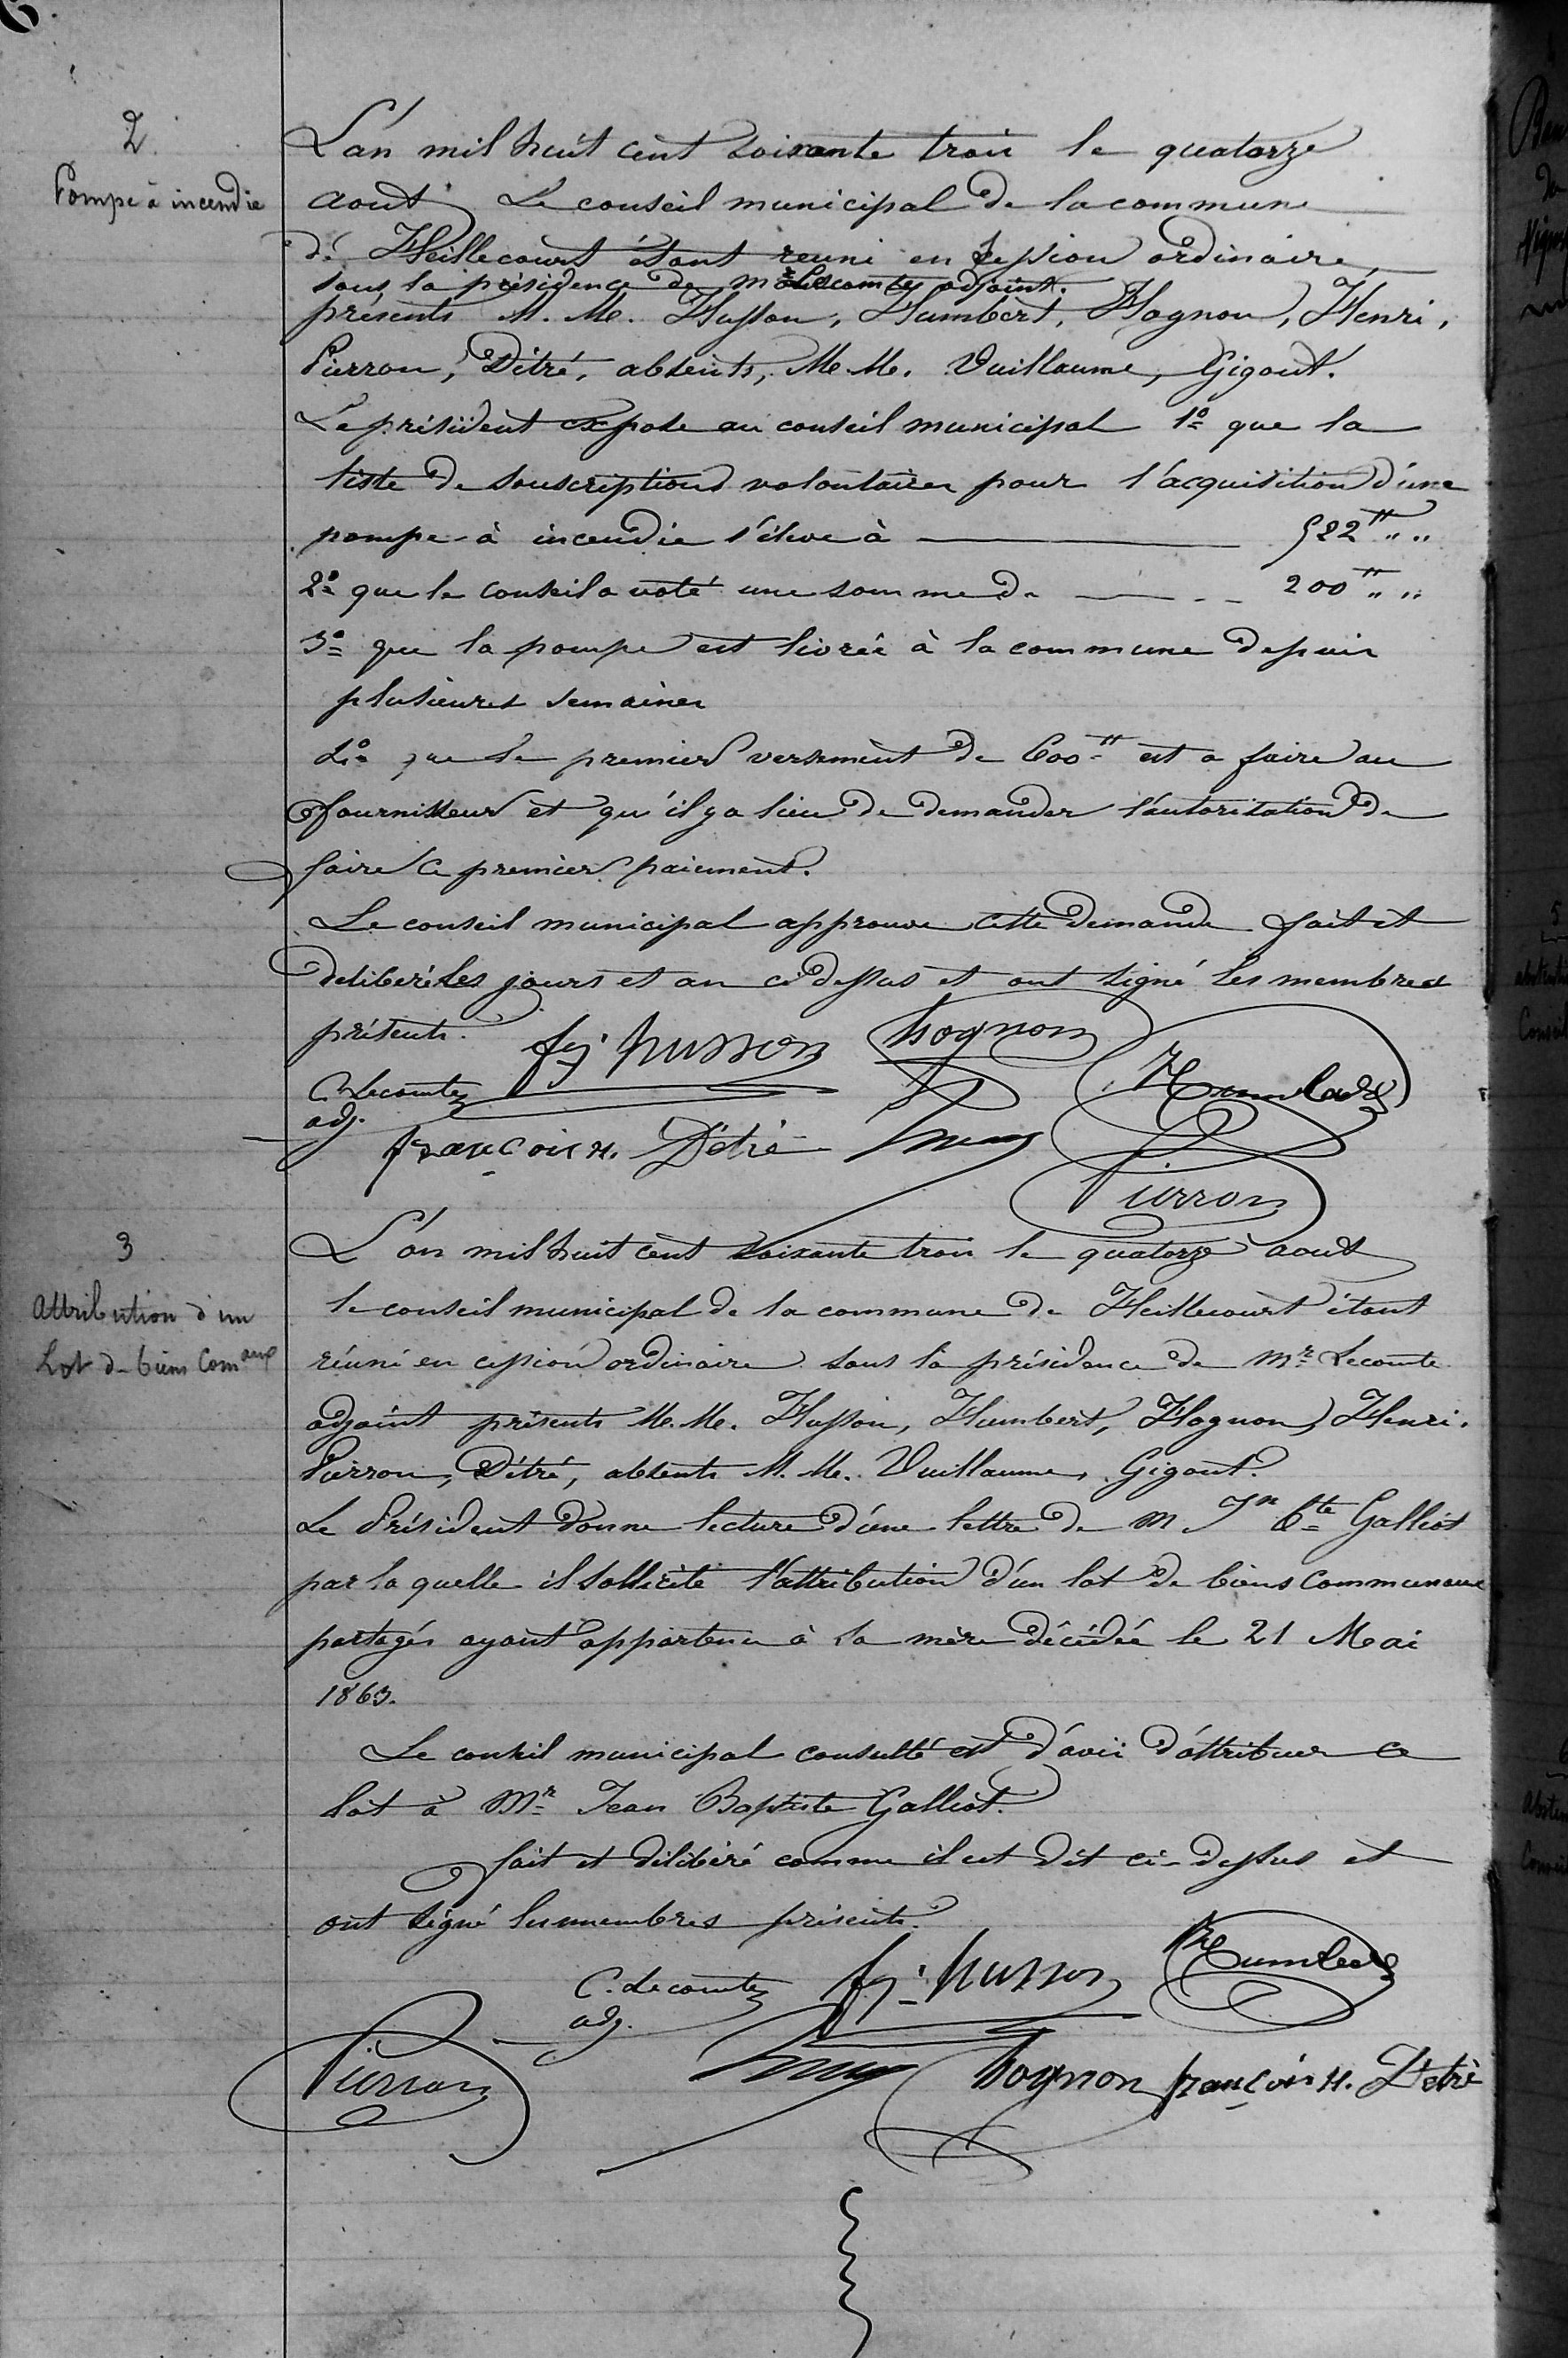 2
Pompe à incendie
L'an mil huit cent soixante trois le quatorze
aout Le conseil municipal de la commune
de Heillecourt étant reuni en session ordinaire
sous la présidence de Mr Lecomte adjoint.
présents M. M. Husson, Humbert, Hognon, Henri,
Pierron, Détré, absents, M. M. Vuillaume, Gigout.
Le président expose au conseil municipal 1º que la
liste de souscriptions volontaires pour l'acquisition d'une
pompe à incendie s'élève à 522 " "
2º que le conseil a voté une somme de 200 " "
3º que la pompe est livrée à la commune depuis
plusieurs semaines
4º que le premier versement de 600 est a faire au
fournisseur et qu'il y a lieu de demander l'autorisation de
faire ce premier paiement.
Le conseil municipal approuve cette demande fait et
deliberé les jours et an ci dessus et ont signé les membres
présents.
fs husson hognon Humbert
C. Lecomte
adj.
françois H. Détré
Pierron
3
Attribution d'un
Lot de biens Comaux
L'an mil huit cent soixante trois le quatorze aout
le conseil municipal de la commune de Heillecourt étant
réuni en cession ordinaire sous la présidence de Mr Lecomte
adjoint présents M. M. Husson, Humbert, Hognon, Henri.
Pierron, Détré, absents M. M. Vuillaume, Gigout.
Le Président donne lecture d'une lettre de M. Jn Bte Galliot
par la quelle il sollicite l'attribution d'un lot de biens Communaux
partagés ayant appartenu à sa mère décédée le 21 Mai
1863.
Le conseil municipal consulté est d'avis d'attribuer ce
lot à Mr Jean Baptiste Galliot.
fait et délibéré comme il est dit ci-dessus et
ont signé les membres présents.
C. Lecomte fs husson Humbert
adj.
Pierron hognon françois H. Détré